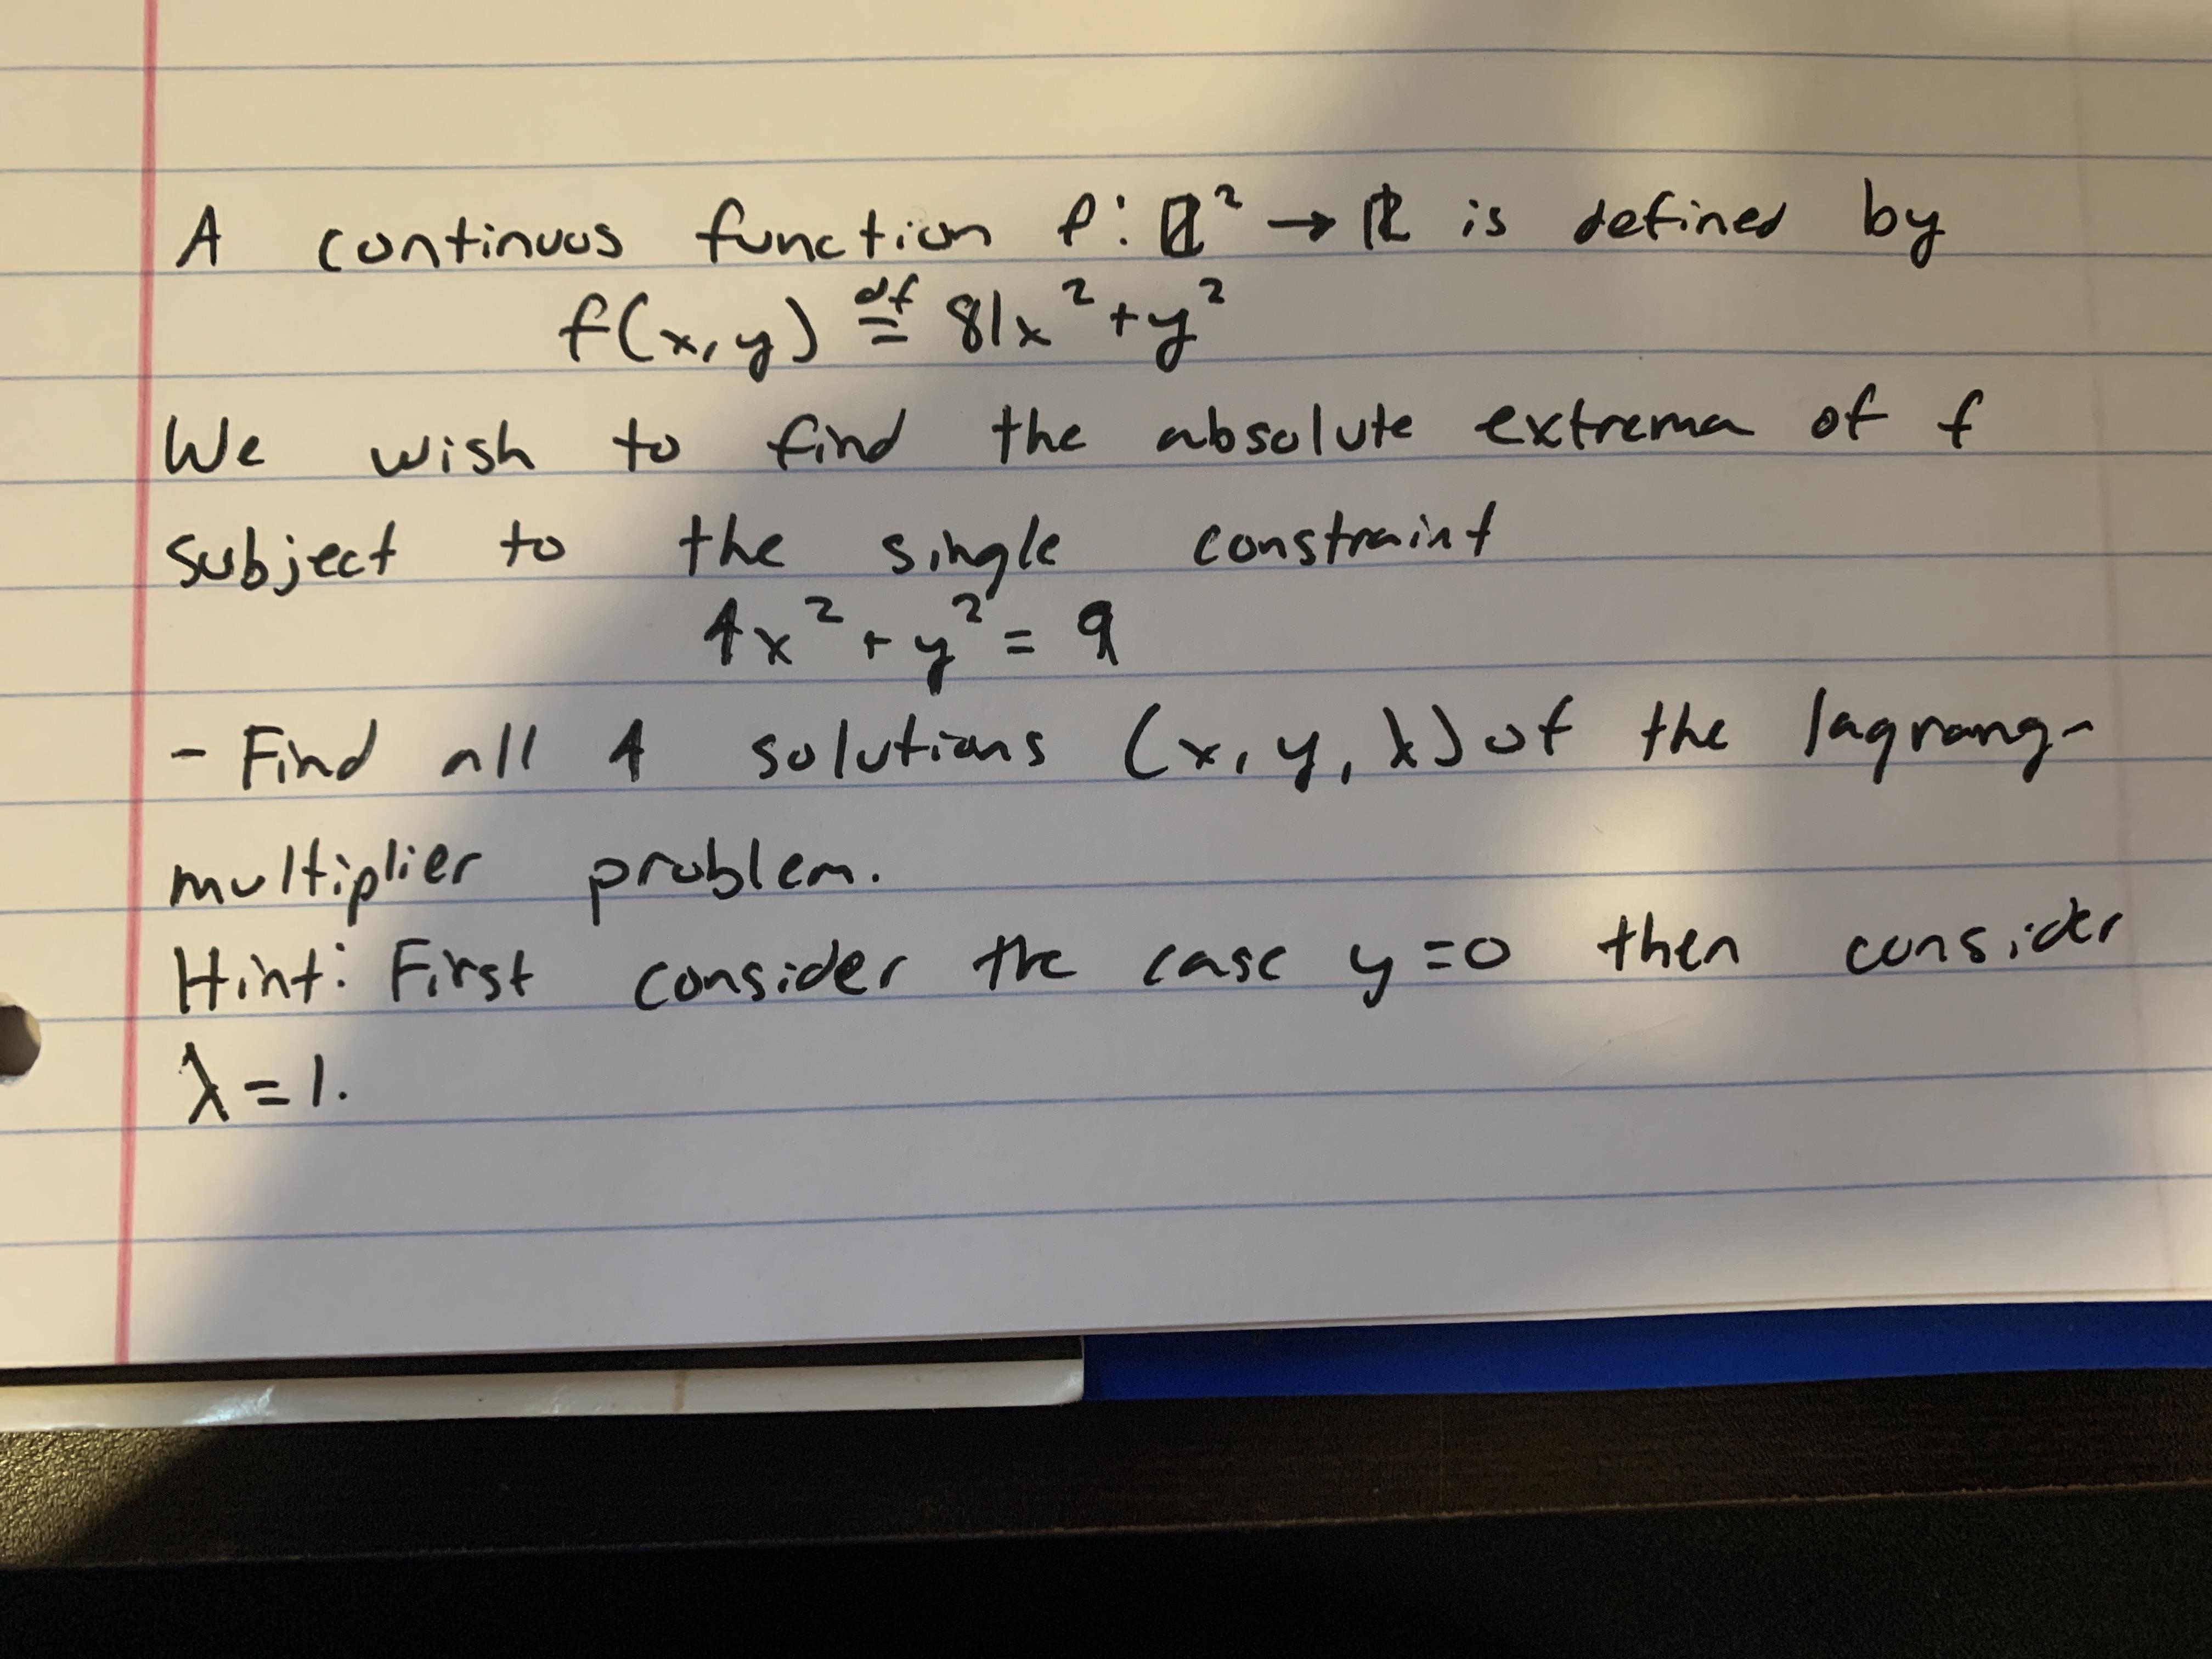 A continuous function f: ℝ² → ℝ is defined by
f(x,y) ≝ 81x² + y²
We wish to find the absolute extrema of f
subject to the single constraint
4x² + y² = 9
- Find all 4 solutions (x, y, λ) of the lagrang-
multiplier problem.
Hint: First consider the case y=0 then consider
λ=1.